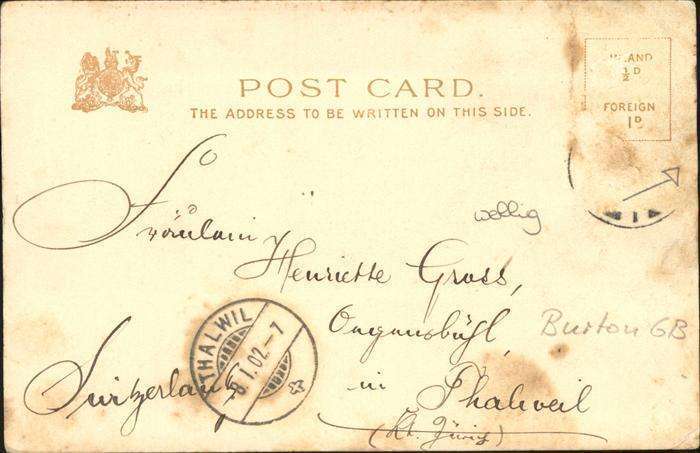 POST CARD.
THE ADDRESS TO BE WRITTEN ON THIS SIDE.
INLAND
½ D
FOREIGN
1 D
Fräulein
wellig
Henriette Gross,
Burton GB
THALWIL
-8.I.02.-7
Switzerland
in Thalweil
(Kt. Zürich)